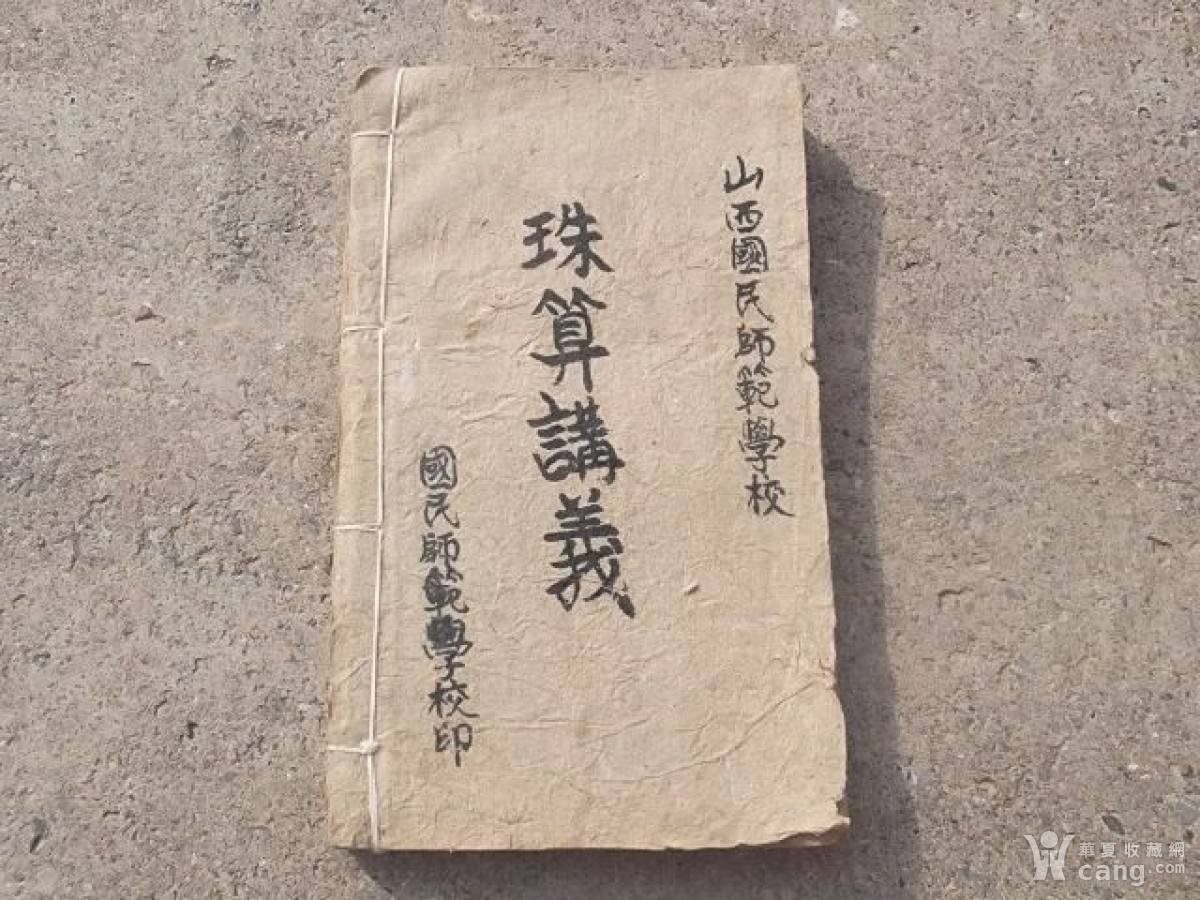 山西國民師範學校
珠算講義
國民師範學校印
華夏收藏網
cang.com